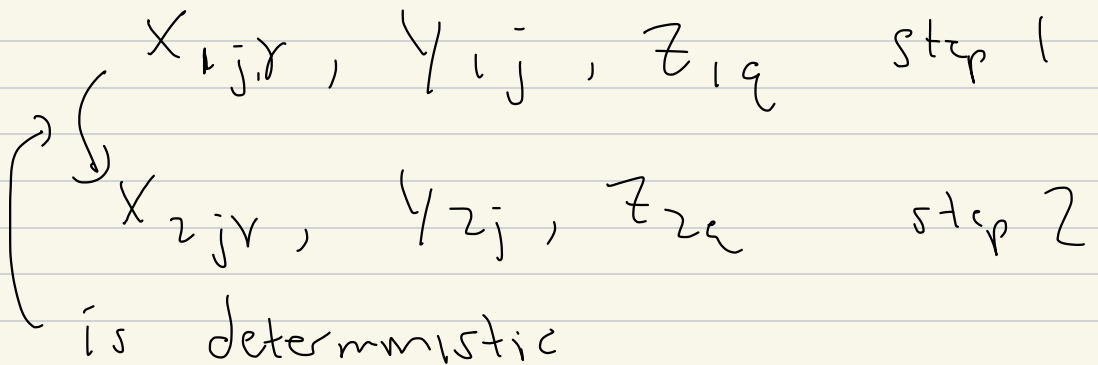 X_{1jγ}, Y_{1j}, Z_{1q} step 1
X_{2jγ}, Y_{2j}, Z_{2q} step 2
is determmistic